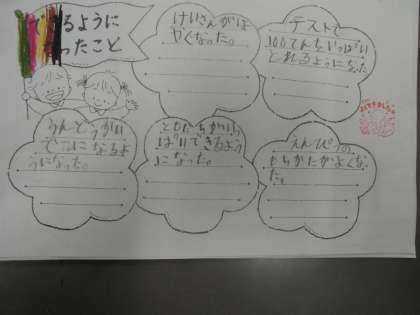 できるように
なったこと
けいさんがは
やくなった。
テストで
100てんをいっぱい
とれるようになった
うんどうがい
になるよ
うになった。
ともだちがいっ
ぱいできるよう
になった。
えんぴつの
もちかたがよくなっ
た。